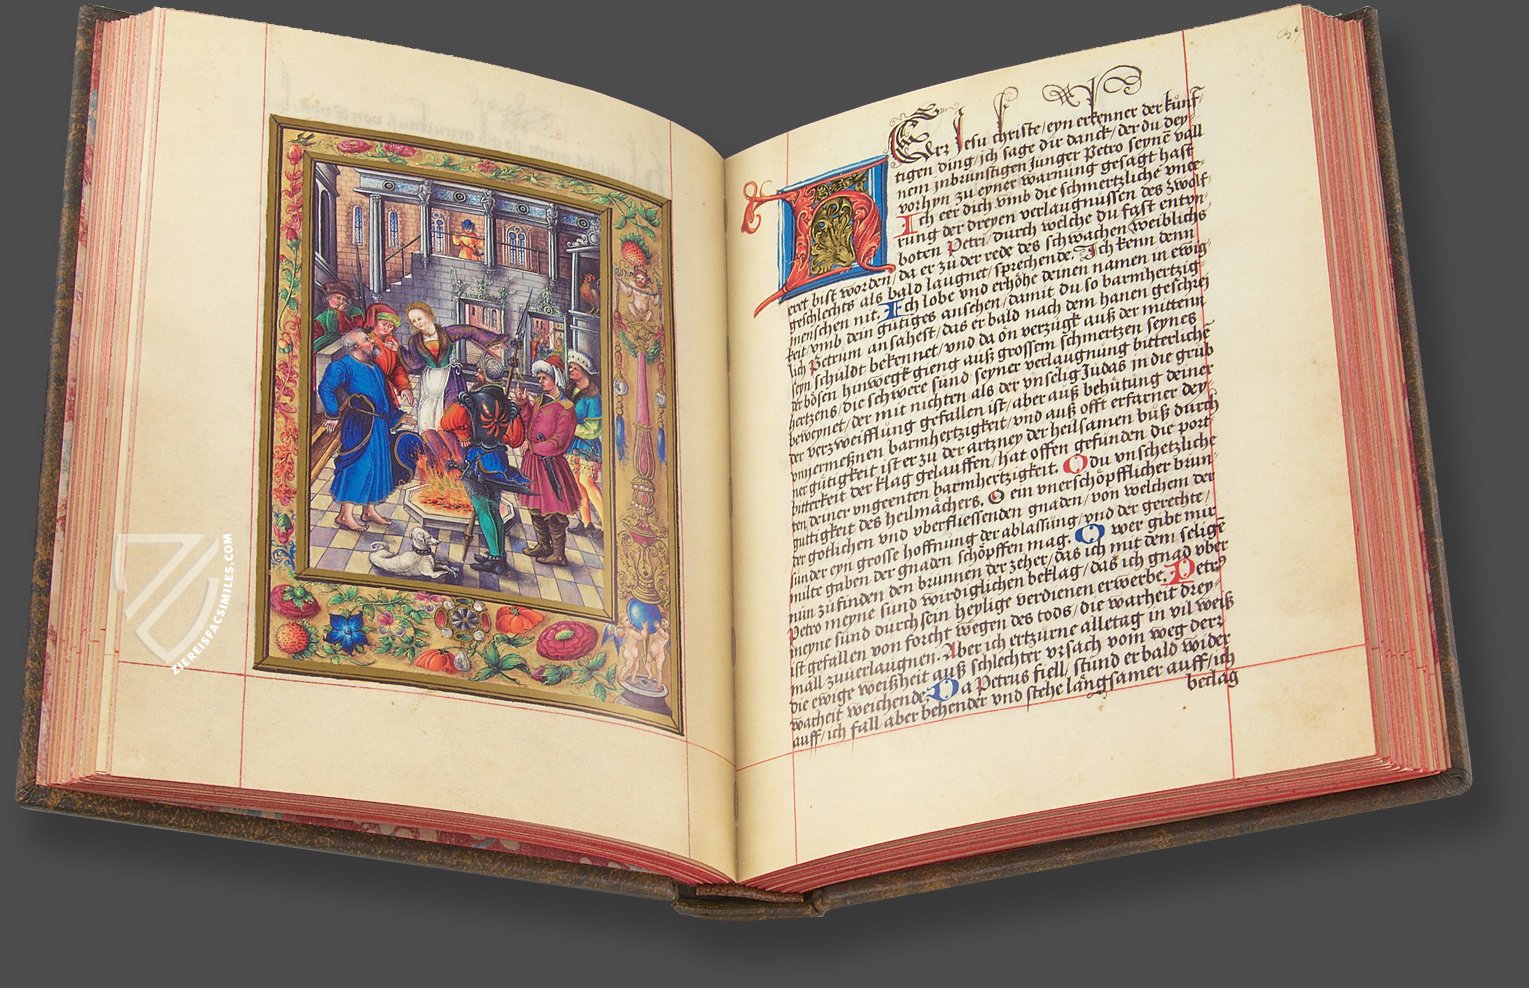 ZIEREISFACSIMILES.COM
Herr Jesu christe/eyn erkenner der künf-
tigen ding/ich sage dir danck/der du dey
nem jnbrunstigen Junger Petro seynē vall
vorhyn zu eyner warnung gesagt hast
Ich eer dich vmb die schmertzliche vnee-
rung der dreyen verlaugnussen des zwölf-
boten Petri/durch welche du fast entyn-
eret bist worden/da er zů der rede des schwachen weiblichs
geschlechts als bald laugnet/sprechende. Ich kenn denn
menschen nit. Ich lobe vnd erhöhe deinen namen in ewig-
keit vmb dein gütiges ansehen/damit du so barmhertzig
lich Petrum ansahest/das er bald nach dem hanen geschrei
seyn schuldt bekennet/vnd da on verzugk auß der mittenn
der bösen hinwegk gieng auß grossem schmertzen seynes
hertzens/die schwere sund seyner verlaugnung bitterliche
beweynet/der mit nichten als der vnselig Judas in die grub
der verzweifflung gefallen ist/aber auß behütung deiner
vnnermeßnen barmhertzigkeit/vnd auß offt erfarner dey-
ner gütigkeit ist er zu der artzney der heilsamen buß durch
bitterkeit der klag gelauffen/hat offen gefunden die port
ten deiner vngeenten barmhertzigkeit. O du vnschetzliche
guttigkeit des heilmachers. O ein vnerschöpfflicher brun-
der gotlichen vnd vberfliessenden gnaden/von welchem der
sunder eyn grosse hoffnung der ablassung/vnd der gerechte/
milte gaben der gnaden schöpffen mag. O wer gibt mir
nün zůfinden den brunnen der zeher/das ich mit dem seligē
Petro meyne sund wirdiglichen beklag/das ich gnad vber
meyne sund durch sein heylige verdienen erwerbe. Petrꝰ
ist gefallen von forcht wegen des tods/die warheit drey
mall zuuerlaugnen. Aber ich ertzürne alletag in vil weiß
die ewige weißheit auß schlechter vrsach vom weg derr
warheit weichende. Da Petrus fiell/stund er bald wider
auff/ich fall aber behender vnd stehe längsamer auff/ich
beclag